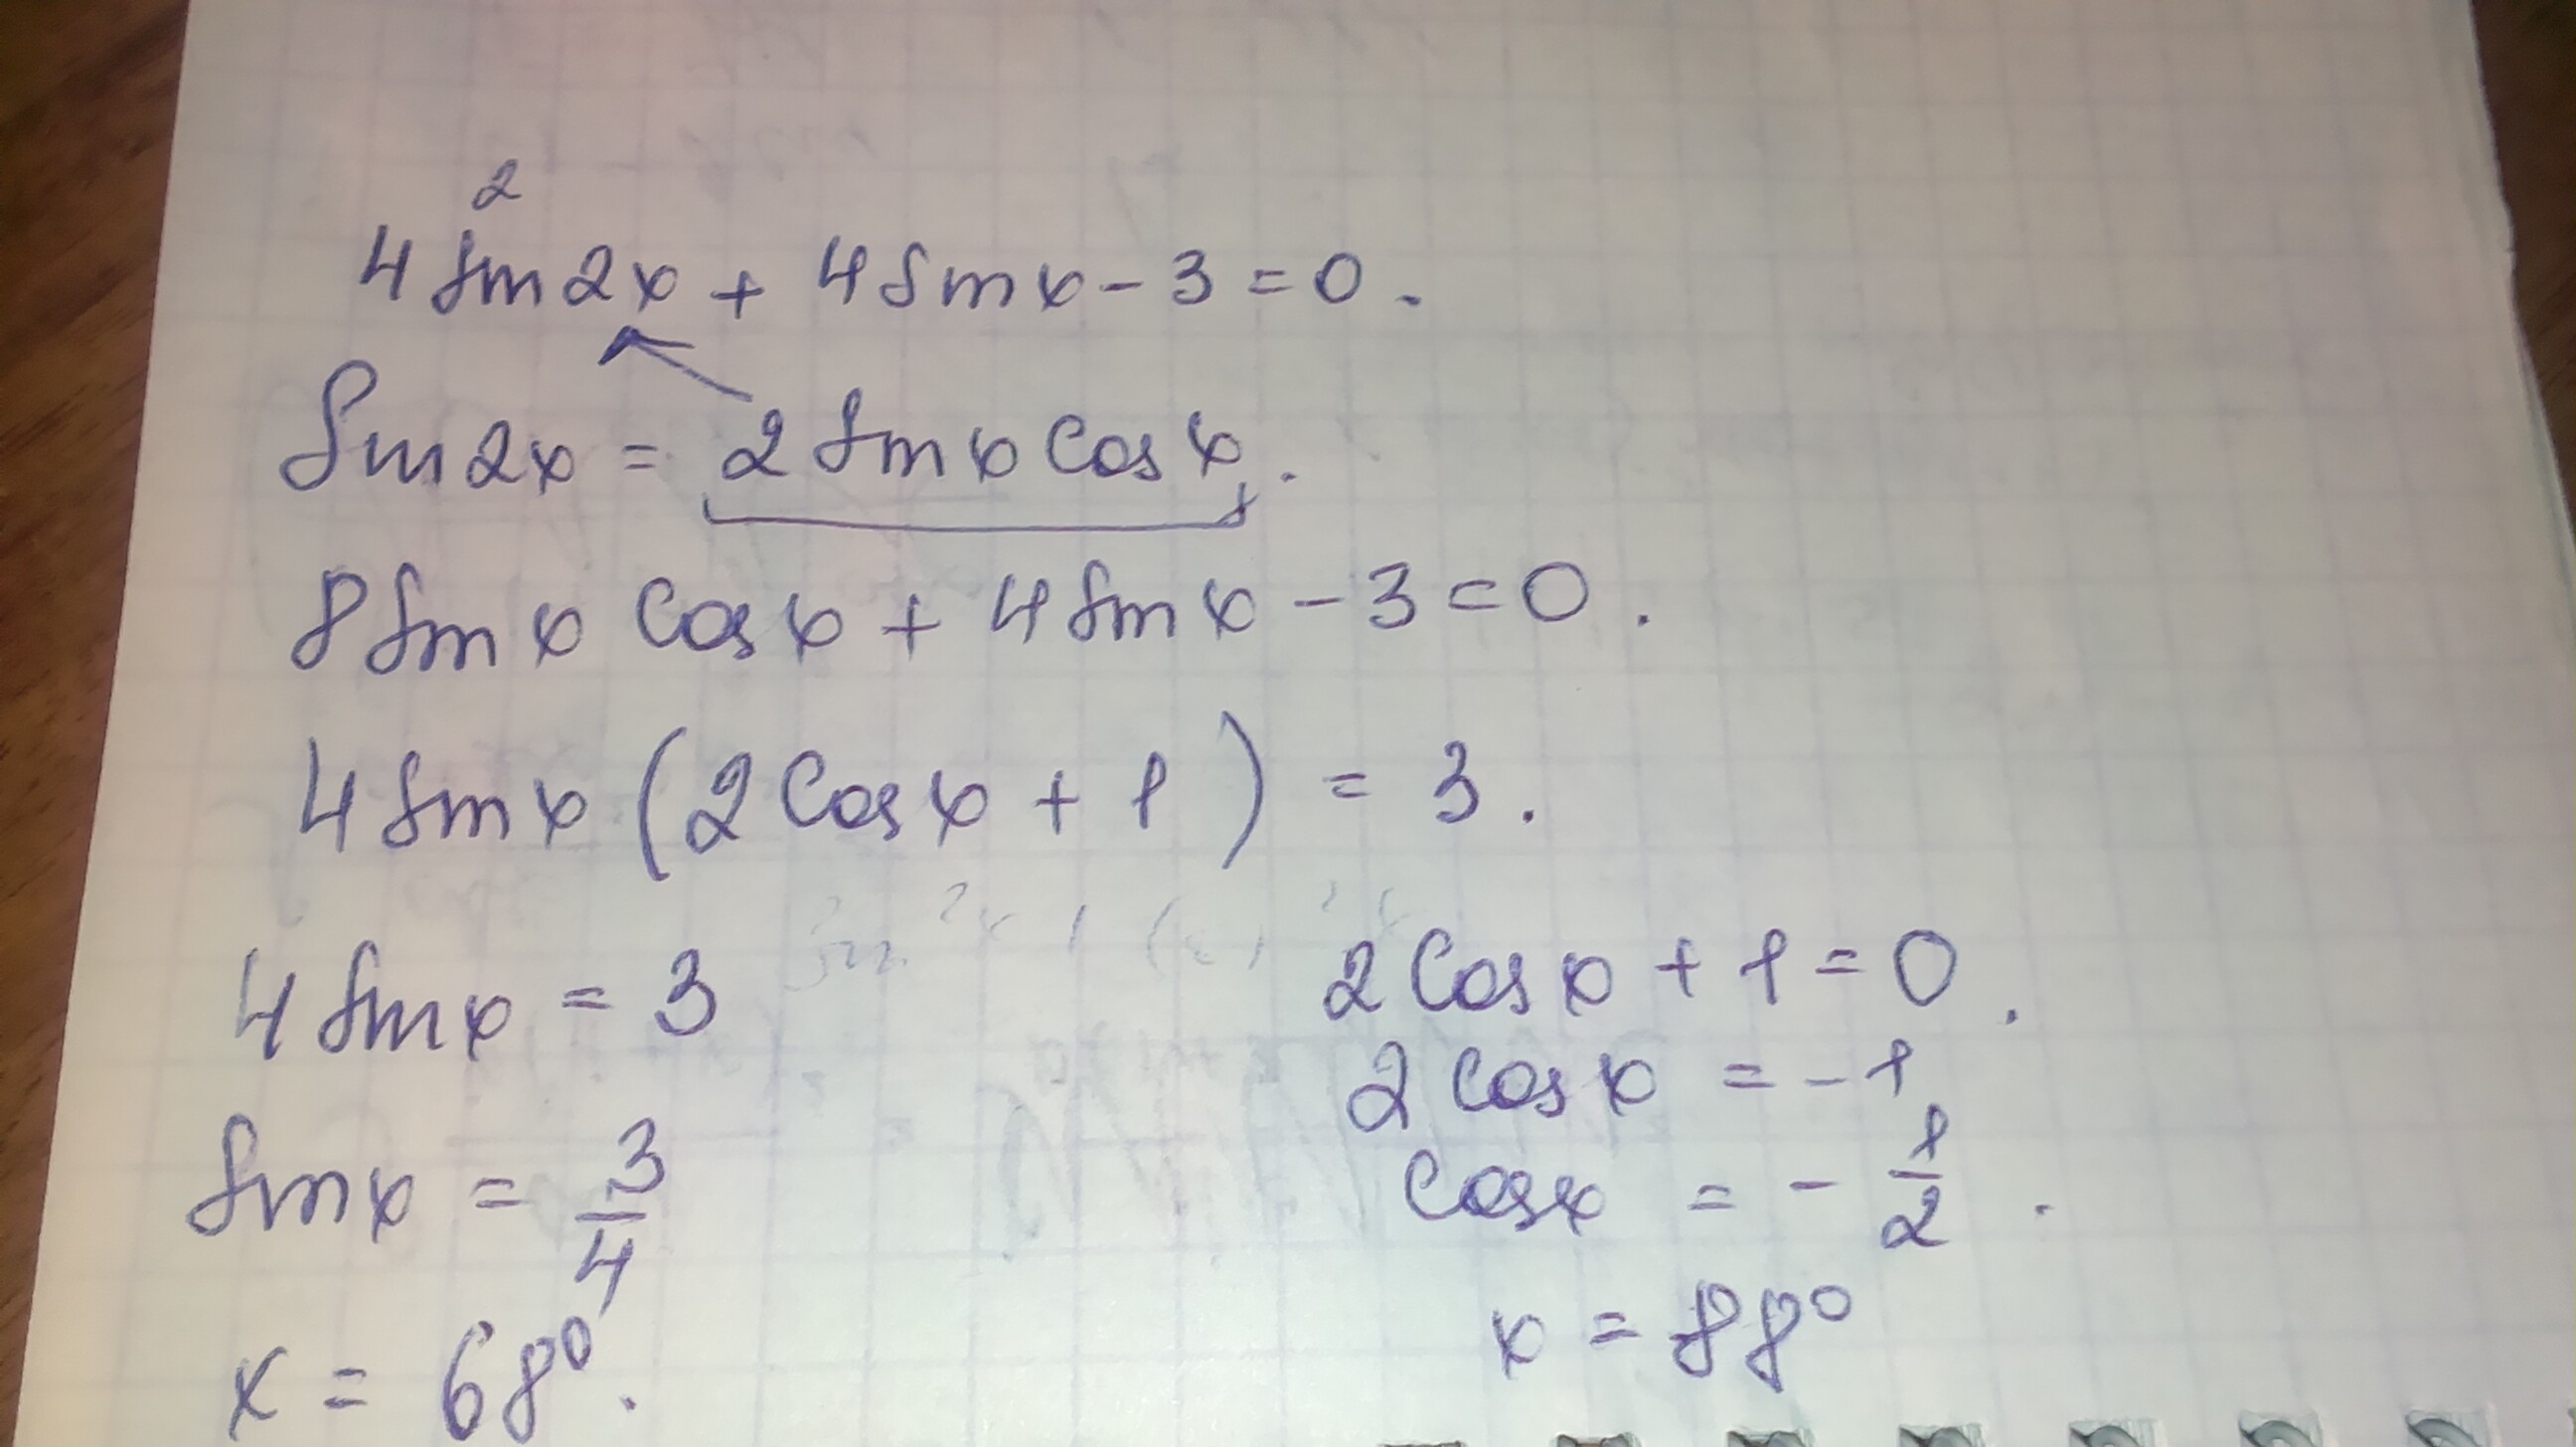 4 sin²2x + 4 sin x - 3 = 0.
Sin 2x = 2 sin x cos x.
8 sin x cos x + 4 sin x - 3 = 0.
4 sin x (2 cos x + 1) = 3.
4 sin x = 3
2 cos x + 1 = 0.
2 cos x = -1
sin x = 3/4
cos x = - 1/2.
x = 68⁰.
x = 88⁰